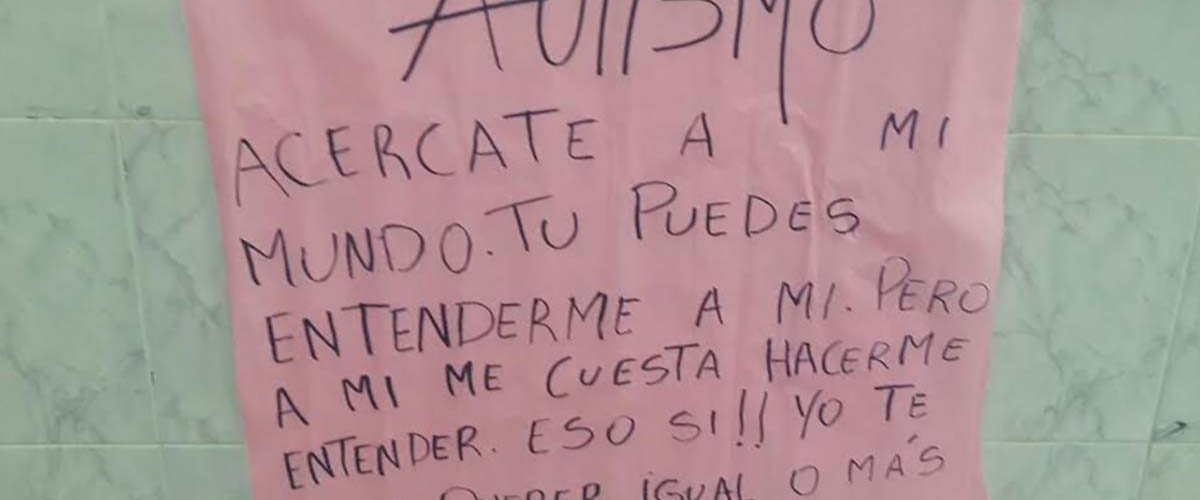 AUTISMO
ACERCATE A MI
MUNDO. TU PUEDES
ENTENDERME A MI. PERO
A MI ME CUESTA HACERME
ENTENDER. ESO SI!! YO TE
QUERER IGUAL O MÁS